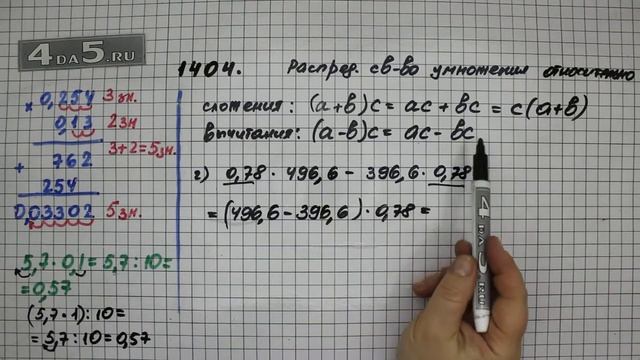 4DA5.RU
× 0,254 3 зн.
0,13 2 зн
3+2=5 зн.
+ 762
254
0,03302 5 зн.
5,7 · 0,1 = 5,7 : 10 =
= 0,57
(5,7 · 1) : 10 =
= 5,7 : 10 = 0,57
1404. Распред. св-во умножения относительно
сложения: (a+b)c = ac + bc = c(a+b)
вычитания: (a-b)c = ac - bc
г) 0,78 · 496,6 - 396,6 · 0,78
= (496,6 - 396,6) · 0,78 =
4DA5.RU